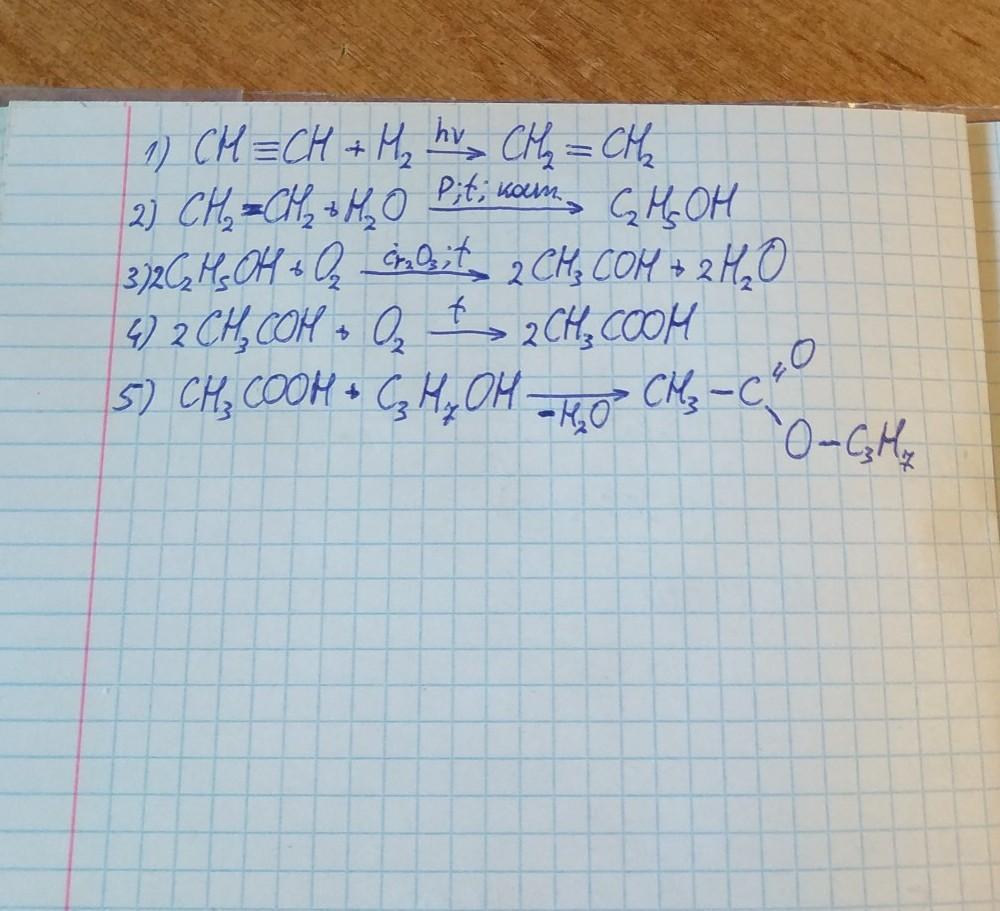 1) CH≡CH + H₂ hν→ CH₂=CH₂
2) CH₂=CH₂ + H₂O P;t; кат.→ C₂H₅OH
3) 2C₂H₅OH + O₂ Cr₂O₃;t→ 2CH₃COH + 2H₂O
4) 2CH₃COH + O₂ t→ 2CH₃COOH
5) CH₃COOH + C₃H₇OH -H₂O→ CH₃-C=O
O-C₃H₇